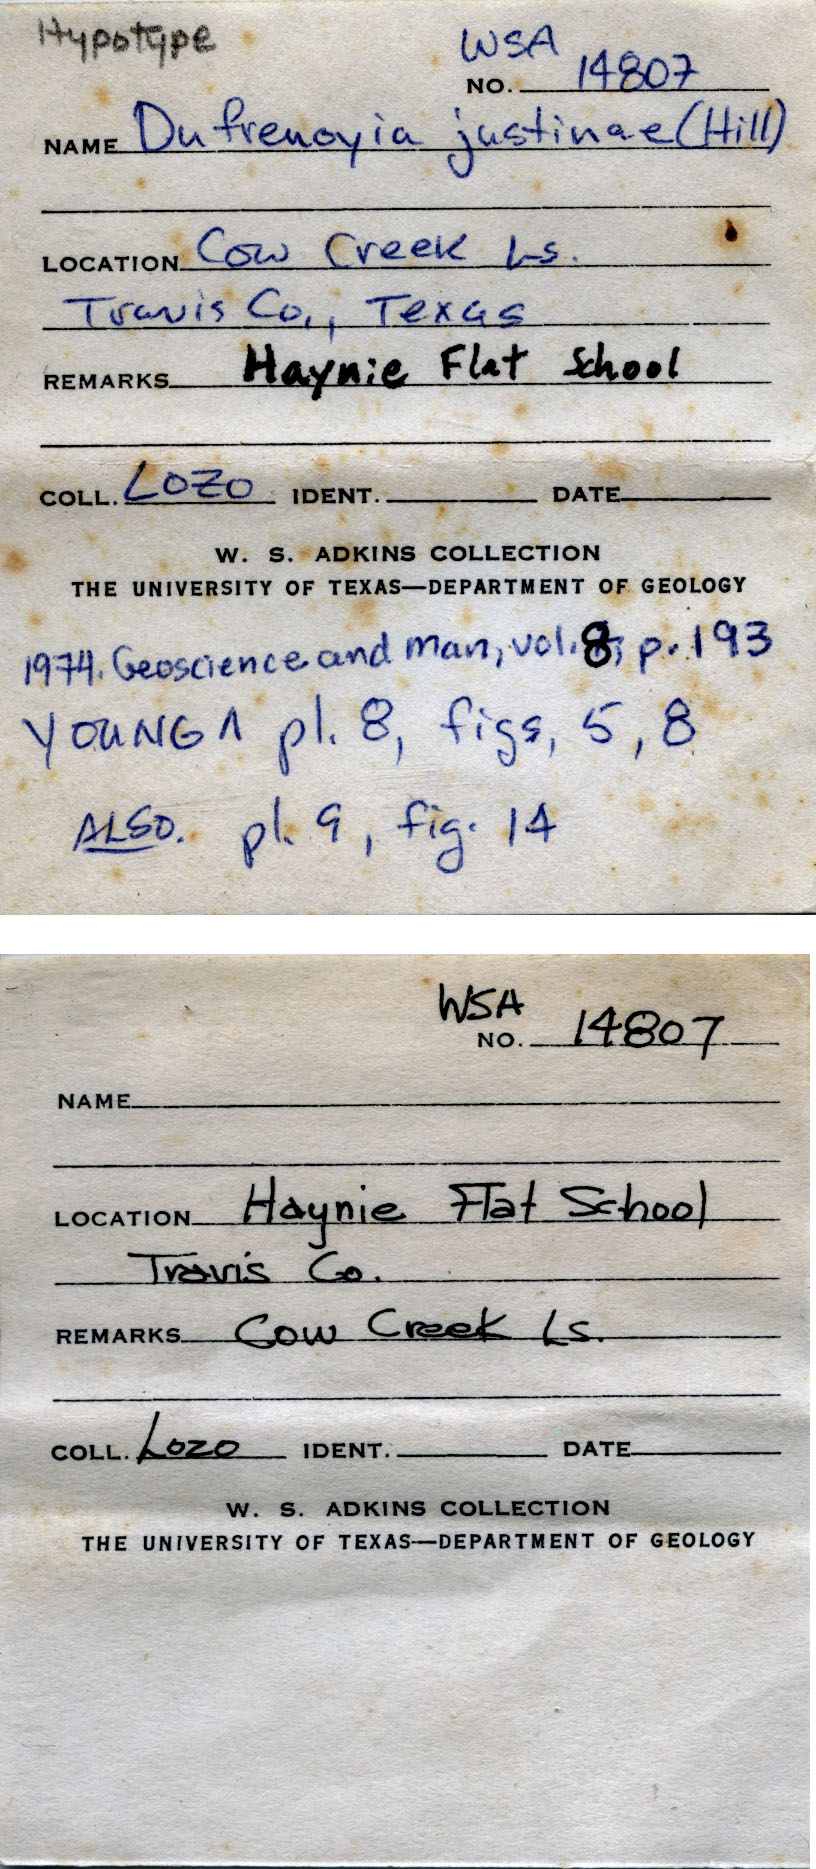 Hypotype
WSA
NO. 14807
NAME Dufrenoyia justinae (Hill)
LOCATION Cow Creek Ls.
Travis Co., Texas
REMARKS Haynie Flat School
COLL. LOZO IDENT. DATE
W. S. ADKINS COLLECTION
THE UNIVERSITY OF TEXAS—DEPARTMENT OF GEOLOGY
1974. Geoscience and Man, vol. 8, p. 193
YOUNG ʌ pl. 8, figs, 5, 8
ALSO. pl. 9, fig. 14
WSA
NO. 14807
NAME
LOCATION Haynie Flat School
Travis Co.
REMARKS Cow Creek Ls.
COLL. Lozo IDENT. DATE
W. S. ADKINS COLLECTION
THE UNIVERSITY OF TEXAS—DEPARTMENT OF GEOLOGY